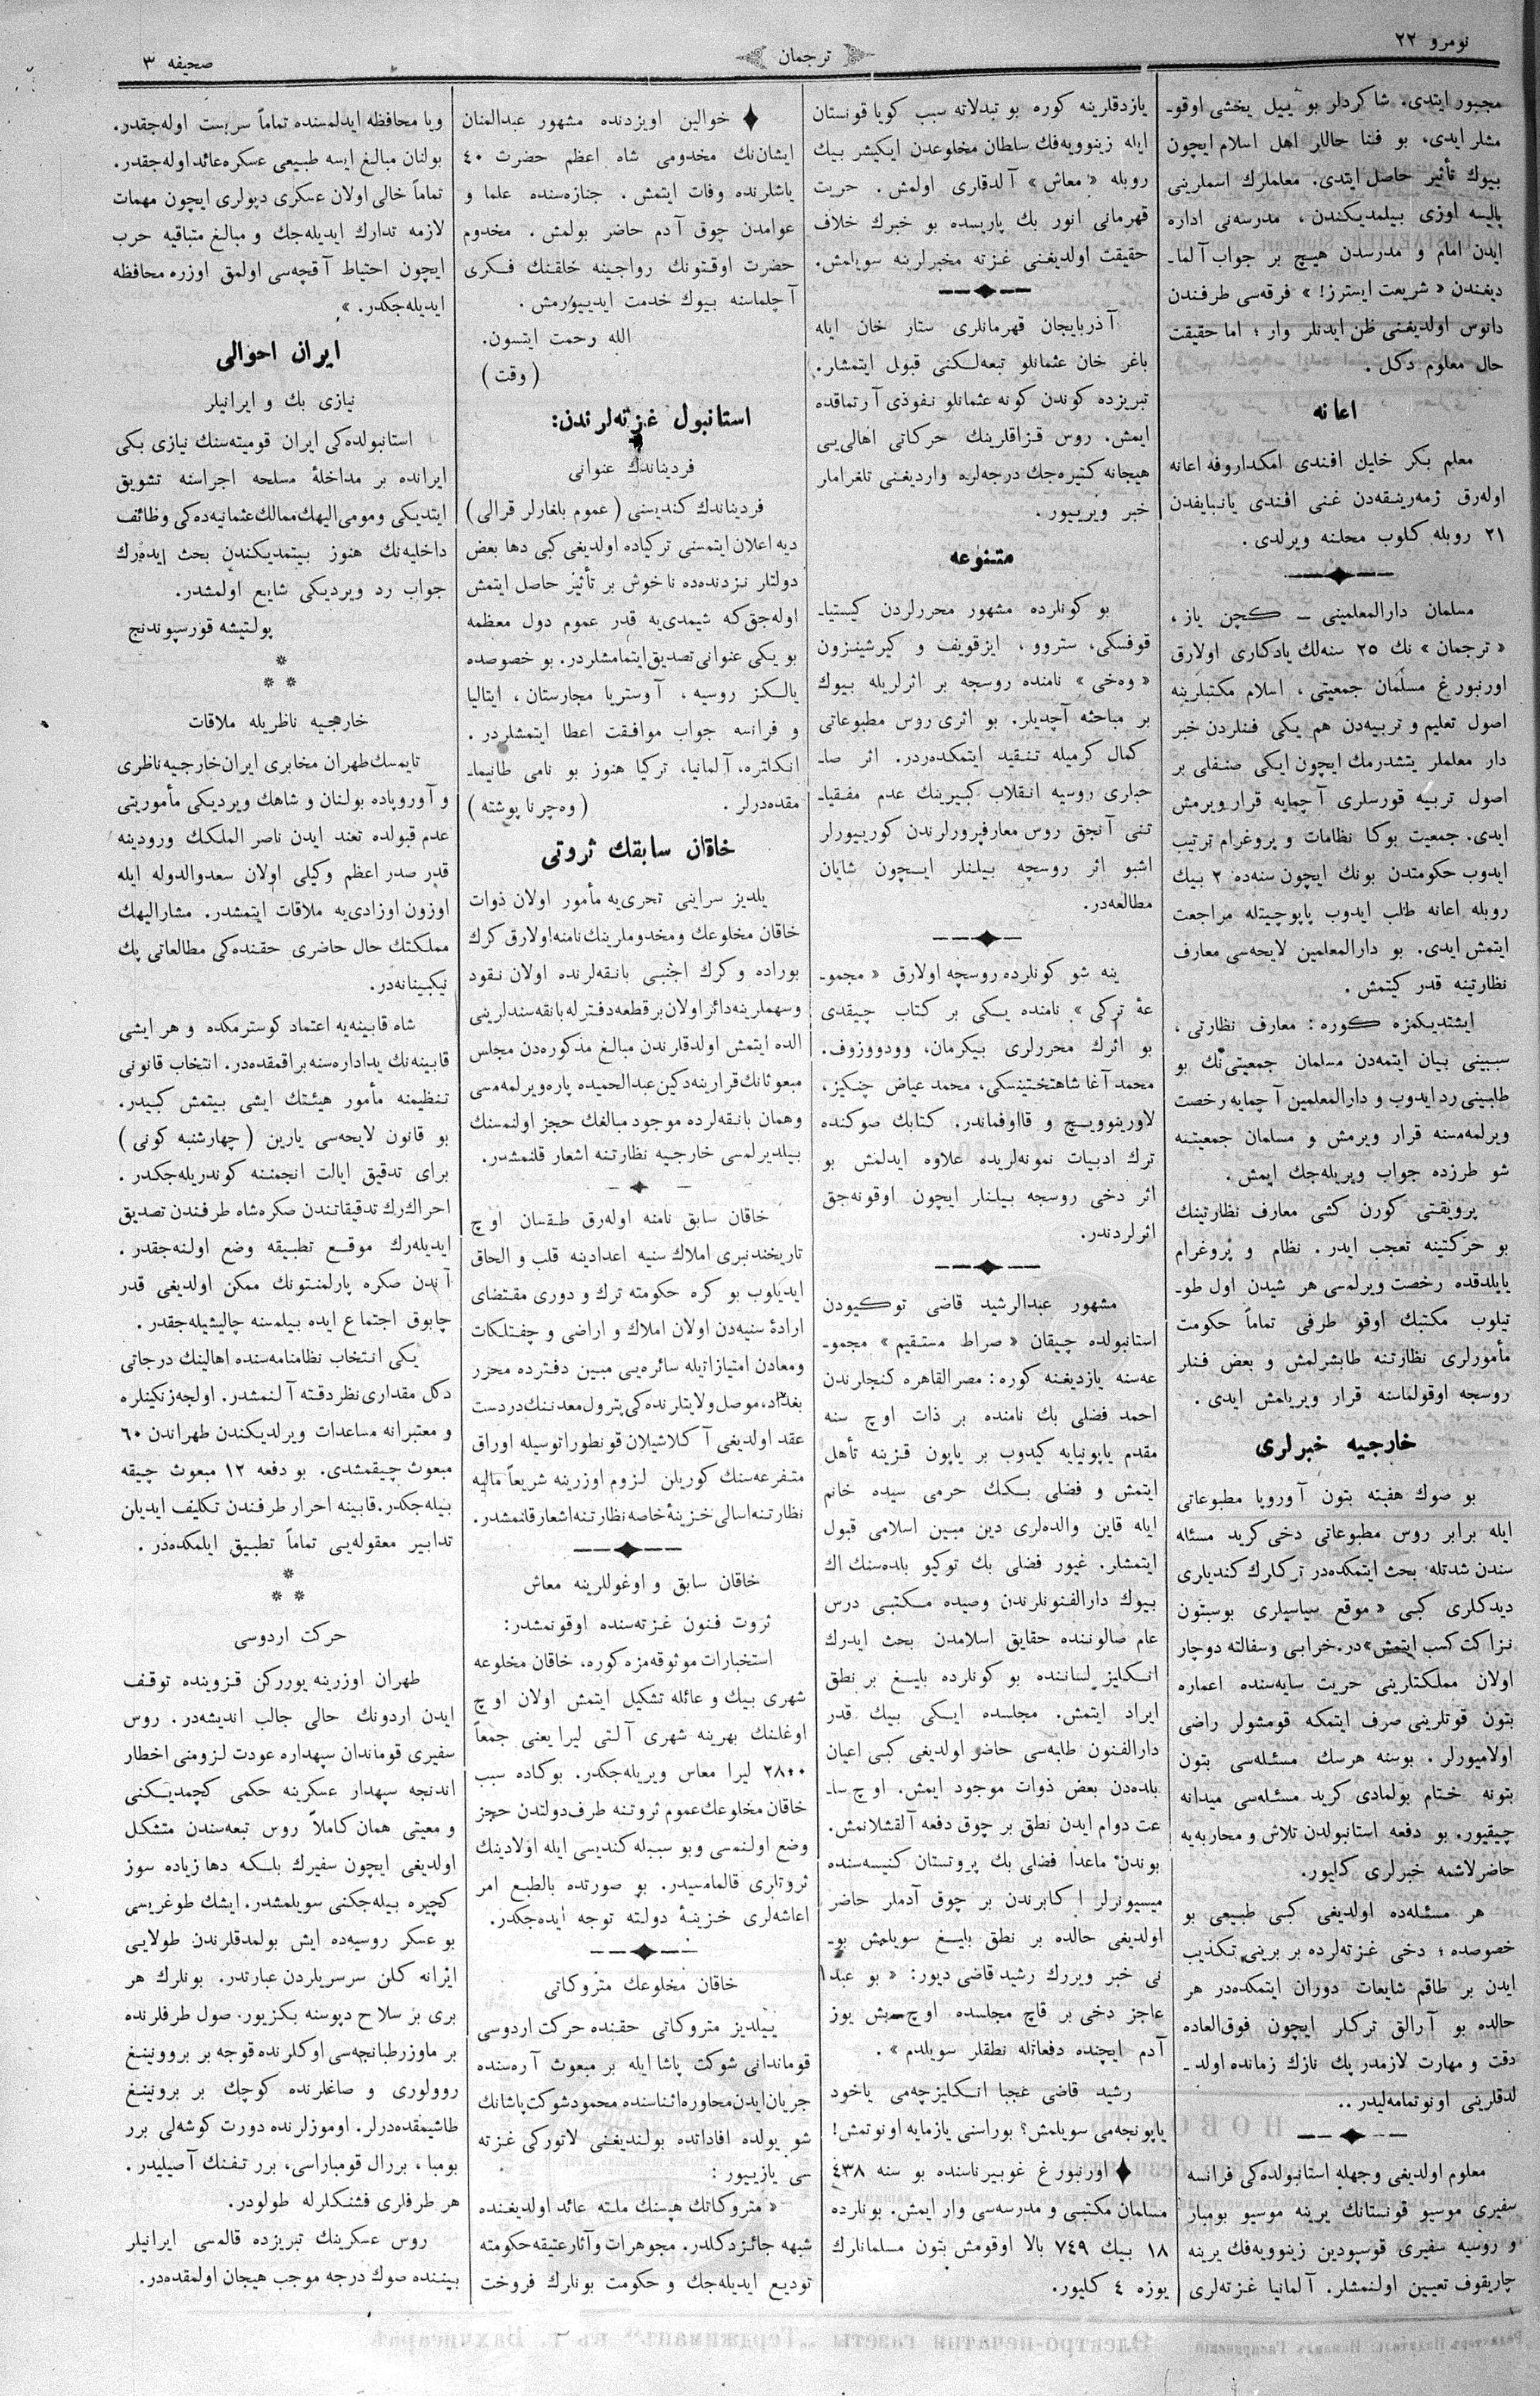 نومرو ٢٢
ترجمان
صحيفه ٣
مجبور ايتدى. شاكردلر بو ييل يخشى اوقو-
مشلر ايدى، بو فنا حاللر اهل اسلام ايچون
بيوك تأثير حاصل ايتدى. معلملرك اسملرينى
پاليسه اوزى بيلمديكندن، مدرسه‌نى اداره
ايدن امام و مدرسدن هيچ بر جواب آلما-
ديغندن « شريعت ايسترز! » فرقه‌سى طرفندن
دانوس اولديغنى ظن ايدنلر وار ؛ اما حقيقت
حال معلوم دكل .
اعانه
معلم بكر خليل افندى امكداروفه اعانه
اوله‌رق ژمه‌رينقه‌دن غنى افندى يانبايفدن
٢١ روبله كلوب محلنه ويرلدى .
مسلمان دارالمعلمينى — كچن ياز ،
« ترجمان » نك ٢٥ سنه‌لك يادكارى اولارق
اورنبورغ مسلمان جمعيتى ، اسلام مكتبلرينه
اصول تعليم و تربيه‌دن هم يكى فنلردن خبر
دار معلملر يتشدرمك ايچون ايكى صنفلى بر
اصول تربيه قورسلرى آچمايه قرار ويرمش
ايدى. جمعيت بوكا نظامات و پروغرام ترتيب
ايدوب حكومتدن بونك ايچون سنه‌ده ٢ بيك
روبله اعانه طلب ايدوب پاپوچيتله مراجعت
ايتمش ايدى. بو دارالمعلمين لايحه‌سى معارف
نظارتينه قدر كيتمش .
ايشتديكمزه كوره : معارف نظارتى ،
سببينى بيان ايتمه‌دن مسلمان جمعيتى‌نك بو
طلبينى رد ايدوب و دارالمعلمين آچمايه رخصت
ويرلمه‌مسنه قرار ويرمش و مسلمان جمعيتنه
شو طرزده جواب ويريله‌جك ايمش .
پرويقتى كورن كشى معارف نظارتينك
بو حركتينه تعجب ايدر . نظام و پروغرام
ياپلدقده رخصت ويرلمسى هر شيدن اول طو-
تيلوب مكتبك اوقو طرفى تماماً حكومت
مأمورلرى نظارتنه طابشرلمش و بعض فنلر
روسجه اوقولماسنه قرار ويريلمش ايدى .
خارجيه خبرلرى
بو صوك هفته بتون آوروپا مطبوعاتى
ايله برابر روس مطبوعاتى دخى كريد مسئله
سندن شدتله بحث ايتمكده‌در تركلرك كنديلرى
ديدكلرى كبى « موقع سياسيلرى بوسبتون
نزاكت كسب ايتمش »در. خرابى و سفالته دوچار
اولان مملكتلرينى حريت سايه‌سنده اعماره
بتون قوتلرينى صرف ايتمكه قومشولر راضى
اولاميورلر . بوسنه هرسك مسئله‌سى بتون
بتونه ختام بولمادى كريد مسئله‌سى ميدانه
چيقيور. بو دفعه استانبولدن تلاش و محاربه‌يه
حاضرلاشمه خبرلرى كليور.
هر مسئله‌ده اولديغى كبى طبيعى بو
خصوصده ؛ دخى غزته‌لرده بر برينى تكذيب
ايدن بر طاقم شايعات دوران ايتمكده‌در هر
حالده بو آرالق تركلر ايچون فوق‌العاده
دقت و مهارت لازمدر پك نازك زمانده اولد-
لدقلرينى اونوتمامه‌ليدر ..
معلوم اولديغى وجهله استانبولده‌كى فرانسه
سفيرى موسيو قونستانك يرينه موسيو بومپار
و روسيه سفيرى قوسپودين زينوويه‌فك يرينه
چاريقوف تعيين اولنمشلر. آلمانيا غزته‌لرى
يازدقلرينه كوره بو تبدلاته سبب كويا قونستان
ايله زينوويه‌فك سلطان مخلوعدن ايكيشر بيك
روبله « معاش » آلدقلرى اولمش . حريت
قهرمانى انور بك پاريسده بو خبرك خلاف
حقيقت اولديغنى غزته مخبرلرينه سويلمش.
آذربايجان قهرمانلرى ستار خان ايله
باغر خان عثمانلو تبعه‌لكنى قبول ايتمشلر.
تبريزده كوندن كونه عثمانلو نفوذى آرتماقده
ايمش. روس قزاقلرينك حركاتى اهالى‌يى
هيجانه كتيره‌جك درجه‌لره وارديغنى تلغرافلر
خبر ويرييور .
متنوعه
بو كونلرده مشهور محررلردن كيستيا-
قوفسكى، ستروو ، ايزقويف و كيرشينزون
« وه‌خى » نامنده روسجه بر اثرلريله بيوك
بر مباحثه آچديلر. بو اثرى روس مطبوعاتى
كمال كرميله تنقيد ايتمكده‌ردر. اثر صا-
حبلرى روسيه انقلاب كبيرينك عدم مفقيا-
تنى آنجق روس معارفپرورلرندن كورييورلر
اشبو اثر روسچه بيلنلر ايچون شايان
مطالعه‌در.
ينه شو كونلرده روسچه اولارق « مجمو-
عهٔ تركى » نامنده يكى بر كتاب چيقدى
بو اثرك محررلرى بيكرمان، وودووزوف.
محمد آغا شاهتختينسكى، محمد عياض چنكيز،
لاورينوويچ و قااوفماندر. كتابك صوكنده
ترك ادبيات نمونه‌لريده علاوه ايدلمش بو
اثر دخى روسجه بيلنلر ايچون اوقونه‌جق
اثرلردندر.
مشهور عبدالرشيد قاضى توكيودن
استانبولده چيقان « صراط مستقيم » مجمو-
عه‌سنه يازديغنه كوره : مصرالقاهره كنجلرندن
احمد فضلى بك نامنده بر ذات اوچ سنه
مقدم ياپونيايه كيدوب بر ياپون قزينه تأهل
ايتمش و فضلى بكك حرمى سيده خانم
ايله قاين والده‌لرى دين مبين اسلامى قبول
ايتمشلر. غيور فضلى بك توكيو بلده‌سنك اك
بيوك دارالفنونلرندن وصيده مكتبى درس
عام صالوننده حقايق اسلامدن بحث ايدرك
انكليز لساننده بو كونلرده بليغ بر نطق
ايراد ايتمش. مجلسده ايكى بيك قدر
دارالفنون طلبه‌سى حاضر اولديغى كبى اعيان
بلده‌دن بعض ذوات موجود ايمش. اوچ سا-
عت دوام ايدن نطق بر چوق دفعه آلقشلانمش.
بوندن ماعدا فضلى بك پروتستان كنيسه‌سنده
ميسيونرلر اكابرندن بر چوق آدملر حاضر
اولديغى حالده بر نطق بليغ سويلمش بو-
نى خبر ويررك رشيد قاضى ديور: « بو عبد
عاجز دخى بر قاچ مجلسده اوچ-بش يوز
آدم ايچنده دفعاتله نطقلر سويلدم » .
رشيد قاضى عجبا انكليزچه‌مى ياخود
ياپونجه‌مى سويلمش؟ بوراسنى يازمايه اونوتمش!
اورنبورغ غوبيرناسنده بو سنه ٤٣٨
مسلمان مكتبى و مدرسه‌سى وار ايمش. بونلرده
١٨ بيك ٧٤٩ بالا اوقومش بتون مسلمانلرك
يوزه ٤ كليور.
خوالين اويزدنده مشهور عبدالمنان
ايشان‌نك مخدومى شاه اعظم حضرت ٤٠
ياشلرنده وفات ايتمش . جنازه‌سنده علما و
عوامدن چوق آدم حاضر بولمش . مخدوم
حضرت اوقتونك رواجينه خلقنك فكرى
آچلماسنه بيوك خدمت ايدييورمش .
الله رحمت ايتسون.
( وقت )
استانبول غزته‌لرندن:
فرديناندك عنوانى
فرديناندك كنديسنى ( عموم بلغارلر قرالى )
ديه اعلان ايتمسنى تركياده اولديغى كبى دها بعض
دولتلر نزدنده‌ده ناخوش بر تأثير حاصل ايتمش
اوله‌جق كه شيمدى‌يه قدر عموم دول معظمه
بو يكى عنوانى تصديق ايتمامشلردر. بو خصوصده
يالكز روسيه ، آوستريا مجارستان ، ايتاليا
و فرانسه جواب موافقت اعطا ايتمشلردر .
انكلتره، آلمانيا، تركيا هنوز بو نامى طانيما-
مقده‌درلر . ( وه‌چرنا پوشته )
خاقان سابقك ثروتى
يلديز سراينى تحرى‌يه مأمور اولان ذوات
خاقان مخلوعك و مخدوملرينك نامنه اولارق كرك
بوراده و كرك اجنبى بانقه‌لرنده اولان نقود
و سهملرينه دائر اولان بر قطعه دفتر له بانقه سندلرينى
الده ايتمش اولدقلرندن مبالغ مذكوره‌دن مجلس
مبعوثانك قرارينه دكين عبدالحميده پاره ويرلمه‌مسى
وهمان بانقه‌لرده موجود مبالغك حجز اولنمسنك
بيلديرلمسى خارجيه نظارتنه اشعار قلنمشدر.
خاقان سابق نامنه اوله‌رق طقسان اوچ
تاريخندنبرى املاك سنيه اعدادينه قلب و الحاق
ايديلوب بو كره حكومته ترك و دورى مقتضاى
ارادهٔ سنيه‌دن اولان املاك و اراضى و چفتلكات
ومعادن امتيازاتيله سائره‌يى مبين دفترده محرر
بغداد، موصل ولايتلرنده‌كى پترول معدننك دردست
عقد اولديغى آكلاشيلان قونطوراتوسيله اوراق
متفرعه‌سنك كوريلن لزوم اوزرينه شريعاً ماليه
نظارتنه اسالى خزينهٔ خاصه نظارتنه اشعار قلنمشدر.
خاقان سابق و اوغوللرينه معاش
ثروت فنون غزته‌سنده اوقونمشدر:
استخبارات موثوقه‌مزه كوره، خاقان مخلوعه
شهرى بيك و عائله تشكيل ايتمش اولان اوچ
اوغلنك بهرينه شهرى آلتى ليرا يعنى جمعاً
٢٨٠٠ ليرا معاس ويريله‌جكدر. بوكاده سبب
خاقان مخلوعك عموم ثروتنه طرف دولتدن حجز
وضع اولنمسى وبو سببله كنديسى ايله اولادينك
ثروتلرى قالمامسيدر. بو صورتده بالطبع امر
اعاشه‌لرى خزينهٔ دولته توجه ايده‌جكدر.
خاقان مخلوعك متروكاتى
ييلديز متروكاتى حقنده حركت اردوسى
قوماندانى شوكت پاشا ايله بر مبعوث آره‌سنده
جريان ايدن محاوره اثناسنده محمود شوكت پاشانك
شو يولده افاداتده بولنديغنى لاتوركى غزته
سى يازييور :
« متروكاتك هپسنك ملته عائد اولديغنده
شبهه جائز دكلدر. مجوهرات و آثار عتيقه حكومته
توديع ايديله‌جك و حكومت بونلرك فروخت
ويا محافظه ايدلمسنده تماماً سربست اوله‌جقدر.
بولنان مبالغ ايسه طبيعى عسكره عائد اوله‌جقدر.
تماماً خالى اولان عسكرى دپولرى ايچون مهمات
لازمه تدارك ايديله‌جك و مبالغ متباقيه حرب
ايچون احتياط آقچه‌سى اولمق اوزره محافظه
ايديله‌جكدر. »
ايران احوالى
نيازى بك و ايرانيلر
استانبولده‌كى ايران قوميته‌سنك نيازى بكى
ايرانده بر مداخلهٔ مسلحه اجراسنه تشويق
ايتديكى ومومى اليهك ممالك عثمانيه‌ده‌كى وظائف
داخليه‌نك هنوز بيتمديكندن بحث ايده‌رك
جواب رد ويرديكى شايع اولمشدر.
پولتيشه قورسپوندنج
خارجيه ناظريله ملاقات
تايمسك طهران مخابرى ايران خارجيه ناظرى
و آوروپاده بولنان و شاهك ويرديكى مأموريتى
عدم قبولده تعند ايدن ناصر الملكك ورودينه
قدر صدر اعظم وكيلى اولان سعدوالدوله ايله
اوزون اوزادى‌يه ملاقات ايتمشدر. مشاراليهك
مملكتك حال حاضرى حقنده‌كى مطالعاتى پك
نيكبينانه‌در.
شاه قابينه‌يه اعتماد كوسترمكده و هر ايشى
قابينه‌نك يد اداره‌سنه براقمقده‌در. انتخاب قانونى
تنظيمنه مأمور هيئتك ايشى بيتمش كبيدر.
بو قانون لايحه‌سى يارين ( چهارشنبه كونى )
براى تدقيق ايالت انجمننه كوندريله‌جكدر .
احراك رك تدقيقاتندن صكره شاه طرفندن تصديق
ايديله‌رك موقع تطبيقه وضع اولنه‌جقدر .
آندن صكره پارلمنتونك ممكن اولديغى قدر
چابوق اجتماع ايده بيلمسنه چاليشيله‌جقدر .
يكى انتخاب نظامنامه‌سنده اهالينك درجاتى
دكل مقدارى نظر دقته آلنمشدر. اولجه زنكينلره
و معتبرانه مساعدات ويرلديكندن طهراندن ٦٠
مبعوث چيقمشدى. بو دفعه ١٢ مبعوث چيقه
بيله‌جكدر. قابينه احرار طرفندن تكليف ايديلن
تدابير معقوله‌يى تماماً تطبيق ايلمكده‌در .
حركت اردوسى
طهران اوزرينه يورركن قزوينده توقف
ايدن اردونك حالى جالب انديشه‌در. روس
سفيرى قوماندان سپهداره عودت لزومنى اخطار
اندنجه سپهدار عسكرينه حكمى كچمديكنى
و معيتى همان كاملاً روس تبعه‌سندن متشكل
اولديغى ايچون سفيرك بلكه دها زياده سوز
كچيره بيله‌جكنى سويلمشدر. ايشك طوغريسى
بو عسكر روسيه‌ده ايش بولمدقلرندن طولايى
ايرانه كلن سرسريلردن عبارتدر. بونلرك هر
برى بر سلاح دپوسنه بكزيور. صول طرفلرنده
بر ماوزر طبانچه‌سى اوكلرنده قوجه بر برووينيغ
روولورى و صاغلرنده كوچك بر برونينغ
طاشيمقده‌درلر. اوموزلرنده دورت كوشه‌لى برر
بومبا ، برزال قومباراسى، برر تفنك آصيليدر .
هر طرفلرى فشنكلرله طولودر.
روس عسكرينك تبريزده قالمسى ايرانيلر
بيننده صوك درجه موجب هيجان اولمقده‌در.